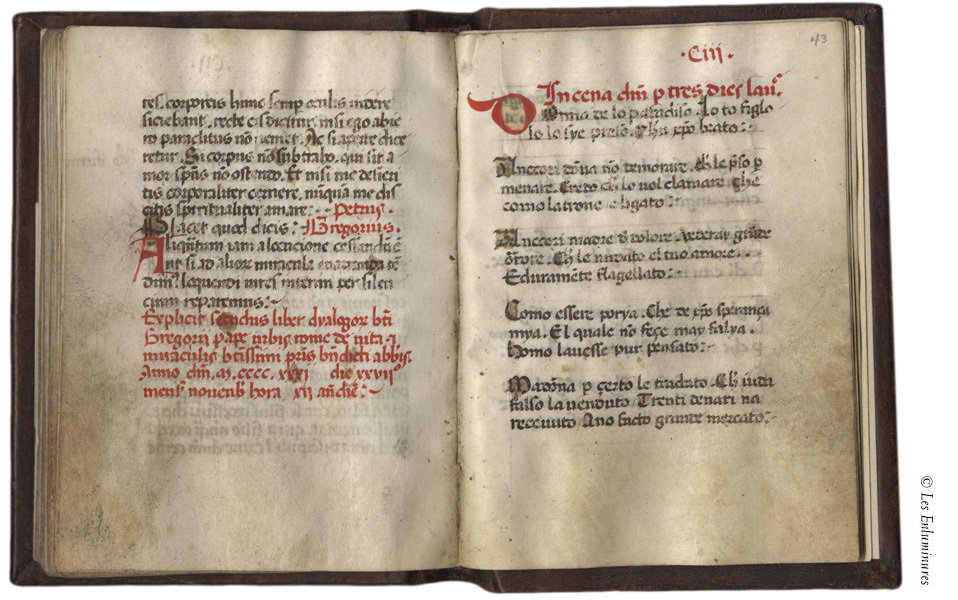 tes. corporeis hunc semp oculis videre
sitiebant. recte eis dicitur. nisi ego abie
ro paraclitus nō veniet. Ac si aperte dice
retur. Si corpus nō subtraho. qui sit a
mor spūs nō ostendo. Et nisi me desieri
tis corporaliter cernere. nūquā me dis
citis spiritualiter amare. Petrus.
Placet quod dicis. Gregorius.
Aliqūtum iam a locucione cessandū ē
Aut si ad alior miracula enarranda tē
dim. loquendi vires interim per silen
cium reparemus.
Explicit secundus liber dyalogor bti
Gregorii pape urbis rome de vita
miraculis btissimi pris bndicti abbis.
Anno dm̄. M. cccc. xxxi die xxvii
mens novenb hora xii an diē.
43
Ciii
In cena dm̄ p tres dies lau.
Donna de lo paradiso. Lo to figlo
lo le sye preso. Yhu xpo beato.
Ancecori dōna nō demorare. Ch le pso p
menare. Creto ch lo vol clamare. Che
como latrone e ligato.
Ancecori madre d dolore. Aederay grāde
orore. Ch le nudato el tuo amore.
E duramēte flagellato.
Como essere porya. Che de xpo sperança
mya. El quale nō feçe may falya.
Homo lavesse pur pensato.
Madōna p çerto le tradato. Ch iuda
falso la venduto. Trenti denari na
receuuto. Ano facto grande mercato.
© Les Enluminures